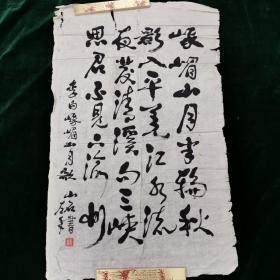 峨嵋山月半轮秋
影入平羌江水流
夜发清溪向三峡
思君不见下渝州
李白峨嵋山月歌